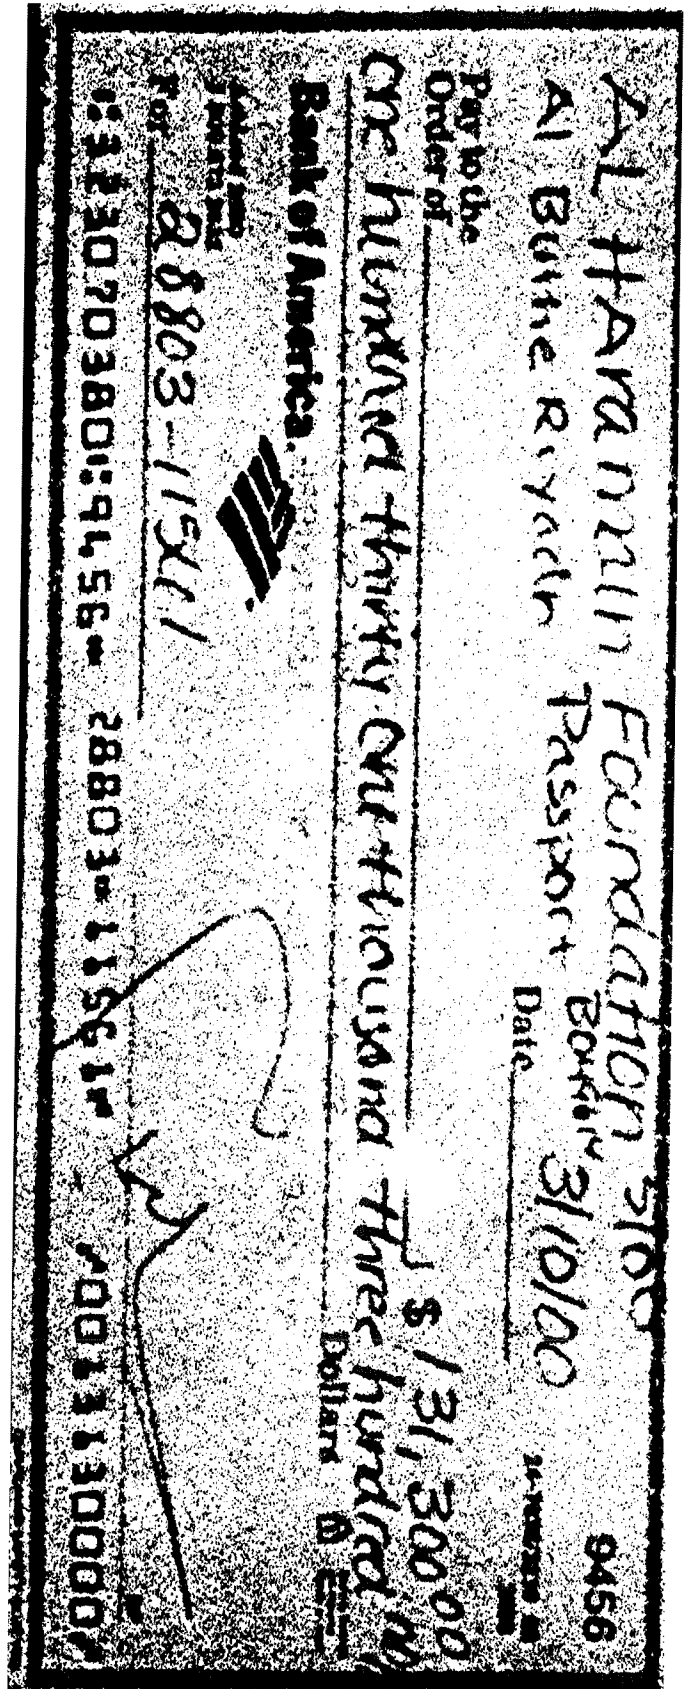 AL HAramain Foundation 3100
9456
Al Buthe Riyadh Passport
BO4601N
Date 3/10/00
Pay to the
Order of
$ 131,300.00
One hundred thirty one thousand three hundred no/
Dollars
Bank of America.
For 28803-11561
⑆323070380⑆9456⑈ 28803⑈11561⑈ ⑇0013130000⑇